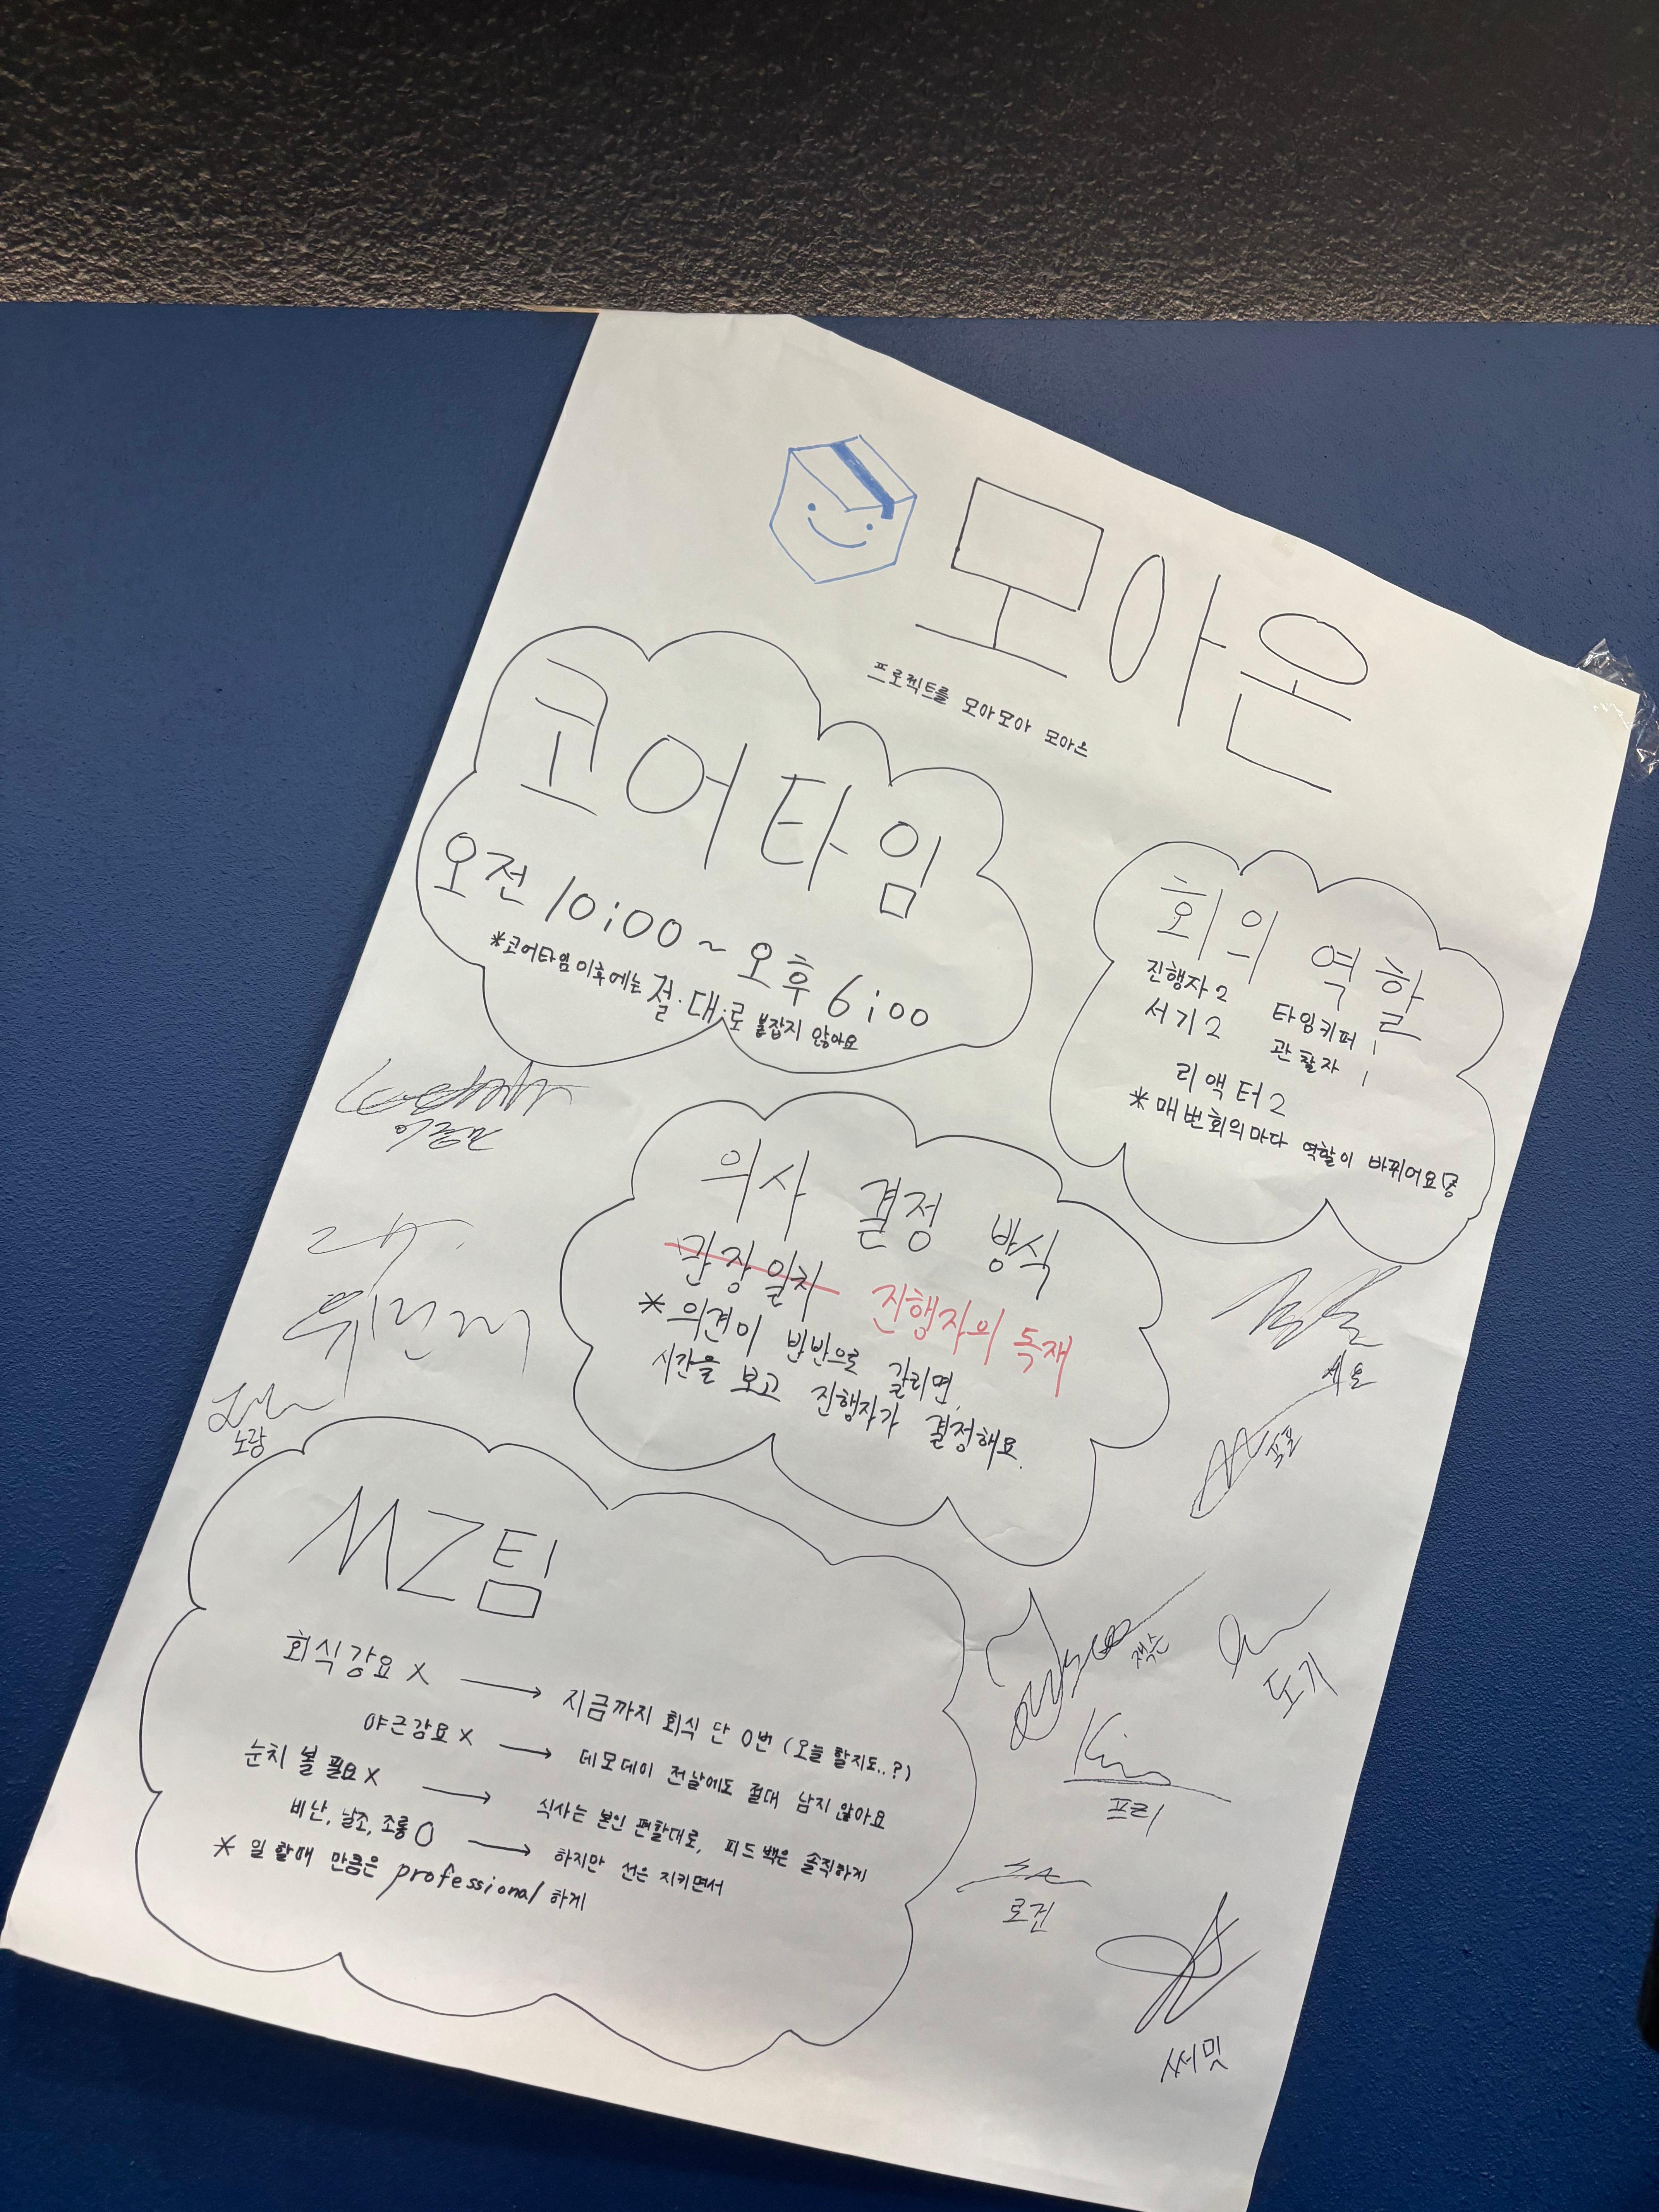 모아온
프로젝트를 모아모아 모아온
코어타임
오전 10:00 ~ 오후 6:00
*코어타임 이후에는 절.대.로 붙잡지 않아요
회의 역할
진행자 2 타임키퍼 1
서기 2 관찰자 1
리액터 2
* 매번 회의마다 역할이 바뀌어요
의사 결정 방식
만장일치 진행자의 독재
* 의견이 반반으로 갈리면,
시간을 보고 진행자가 결정해요.
노랑
MZ팀
회식강요 X → 지금까지 회식 단 0번 (오늘 할지도..?)
야근강요 X → 데모데이 전날에도 절대 남지 않아요
눈치 볼 필요 X → 식사는 본인 편할대로, 피드백은 솔직하게
비난, 날조, 조롱 O → 하지만 선은 지키면서
* 일 할때 만큼은 professional 하게
잭슨
도기
Kim
프리
로건
써밋